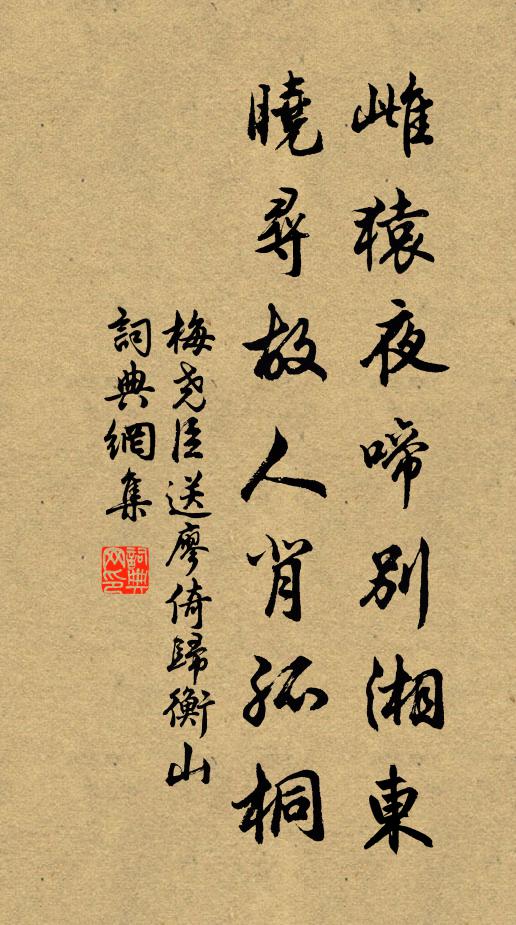 雌猿夜啼别湘東
曉尋故人背孤桐
梅堯臣送廖倚歸衡山
詞典網集
詞典网印